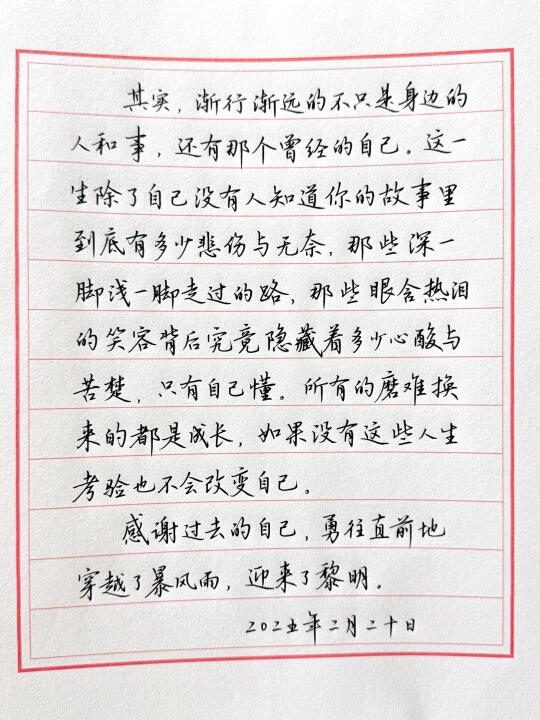 其实，渐行渐远的不只是身边的
人和事，还有那个曾经的自己。这一
生除了自己没有人知道你的故事里
到底有多少悲伤与无奈，那些深一
脚浅一脚走过的路，那些眼含热泪
的笑容背后究竟隐藏着多少心酸与
苦楚，只有自己懂。所有的磨难换
来的都是成长，如果没有这些人生
考验也不会改变自己。
感谢过去的自己，勇往直前地
穿越了暴风雨，迎来了黎明。
二〇二五年二月二十日